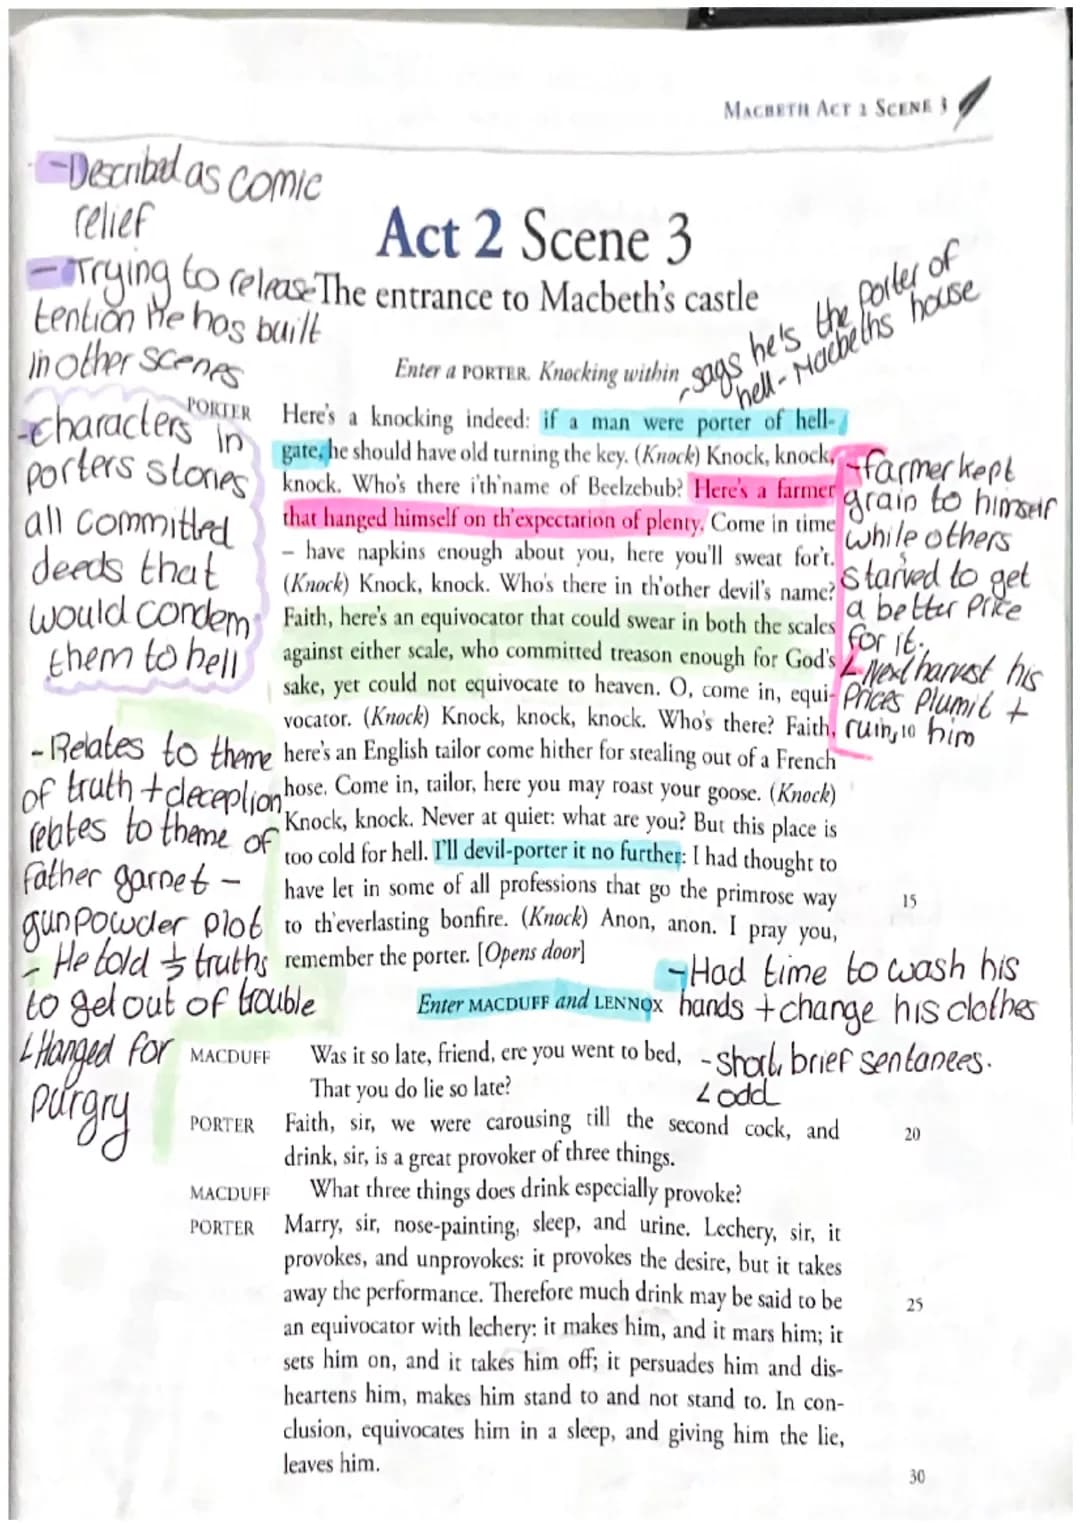 MACBETH ACT 2 SCENE 3
-Described as comic
relief
- Trying to release
tention he has built
in other scenes
Act 2 Scene 3
The entrance to Macbeth's castle
-says he's the porter of
hell - Macbeths house
Enter a PORTER. Knocking within
-characters in
porters stories
all committed
deeds that
would condem
them to hell
PORTER Here's a knocking indeed: if a man were porter of hell-
gate, he should have old turning the key. (Knock) Knock, knock,
knock. Who's there i'th'name of Beelzebub? Here's a farmer
that hanged himself on th'expectation of plenty. Come in time
– have napkins enough about you, here you'll sweat for't.
(Knock) Knock, knock. Who's there in th'other devil's name?
Faith, here's an equivocator that could swear in both the scales
against either scale, who committed treason enough for God's
sake, yet could not equivocate to heaven. O, come in, equi-
vocator. (Knock) Knock, knock, knock. Who's there? Faith, 10
here's an English tailor come hither for stealing out of a French
hose. Come in, tailor, here you may roast your goose. (Knock)
Knock, knock. Never at quiet: what are you? But this place is
too cold for hell. I'll devil-porter it no further: I had thought to
have let in some of all professions that go the primrose way 15
to th'everlasting bonfire. (Knock) Anon, anon. I pray you,
remember the porter. [Opens door]
-farmer kept
grain to himself
while others
starved to get
a better Price
for it.
L Next harvest his
Prices Plumit +
ruin, him
- Relates to theme
of truth + deception
relates to theme of
father garnet -
gunpowder plot
- He told ½ truths
to get out of trouble
L Hanged for
purgry
Enter MACDUFF and LENNOX
-Had time to wash his
hands + change his clothes
MACDUFF Was it so late, friend, ere you went to bed,
That you do lie so late?
- short, brief sentances.
L odd
PORTER Faith, sir, we were carousing till the second cock, and 20
drink, sir, is a great provoker of three things.
MACDUFF What three things does drink especially provoke?
PORTER Marry, sir, nose-painting, sleep, and urine. Lechery, sir, it
provokes, and unprovokes: it provokes the desire, but it takes
away the performance. Therefore much drink may be said to be 25
an equivocator with lechery: it makes him, and it mars him; it
sets him on, and it takes him off; it persuades him and dis-
heartens him, makes him stand to and not stand to. In con-
clusion, equivocates him in a sleep, and giving him the lie,
leaves him. 30